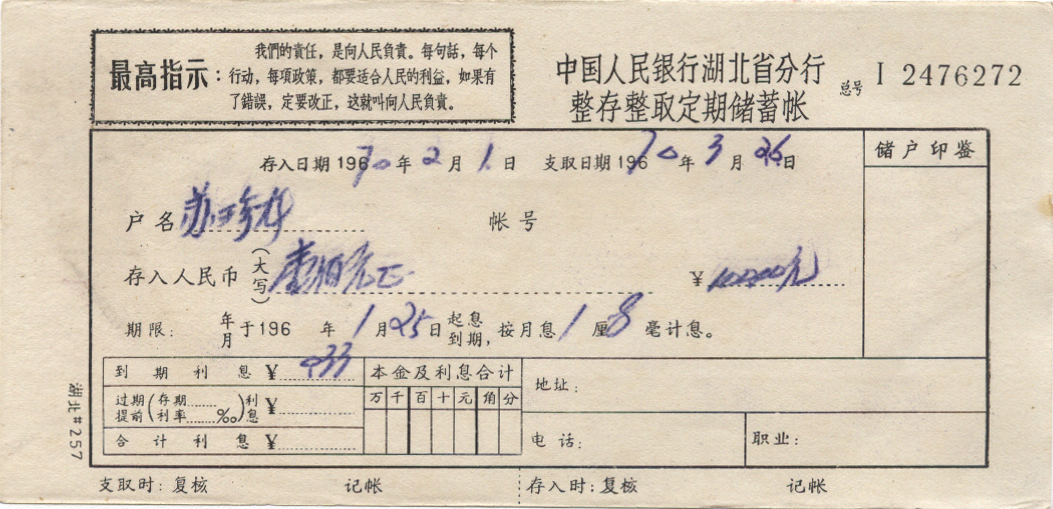 最高指示：
我們的責任，是向人民負責。每句話，每个
行动，每項政策，都要适合人民的利益，如果有
了錯誤，定要改正，这就叫向人民負責。
中国人民银行湖北省分行
整存整取定期储蓄帐
总号 I 2476272
存入日期 19670年2月1日 支取日期 19670年3月26日
储户印鉴
户名 苏 帐号
存入人民币（大写） 佰元正 ¥ 元
期限： 年 月 于196 年1月25日 起息 到期， 按月息1厘8毫计息。
到期利息 ¥ 033
过期 提前 （存期 利率 ‰）利息 ¥
合计利息 ¥
本金及利息合计
万 千 百 十 元 角 分
地址：
电话： 职业：
湖北#257
支取时：复核 记帐 存入时：复核 记帐